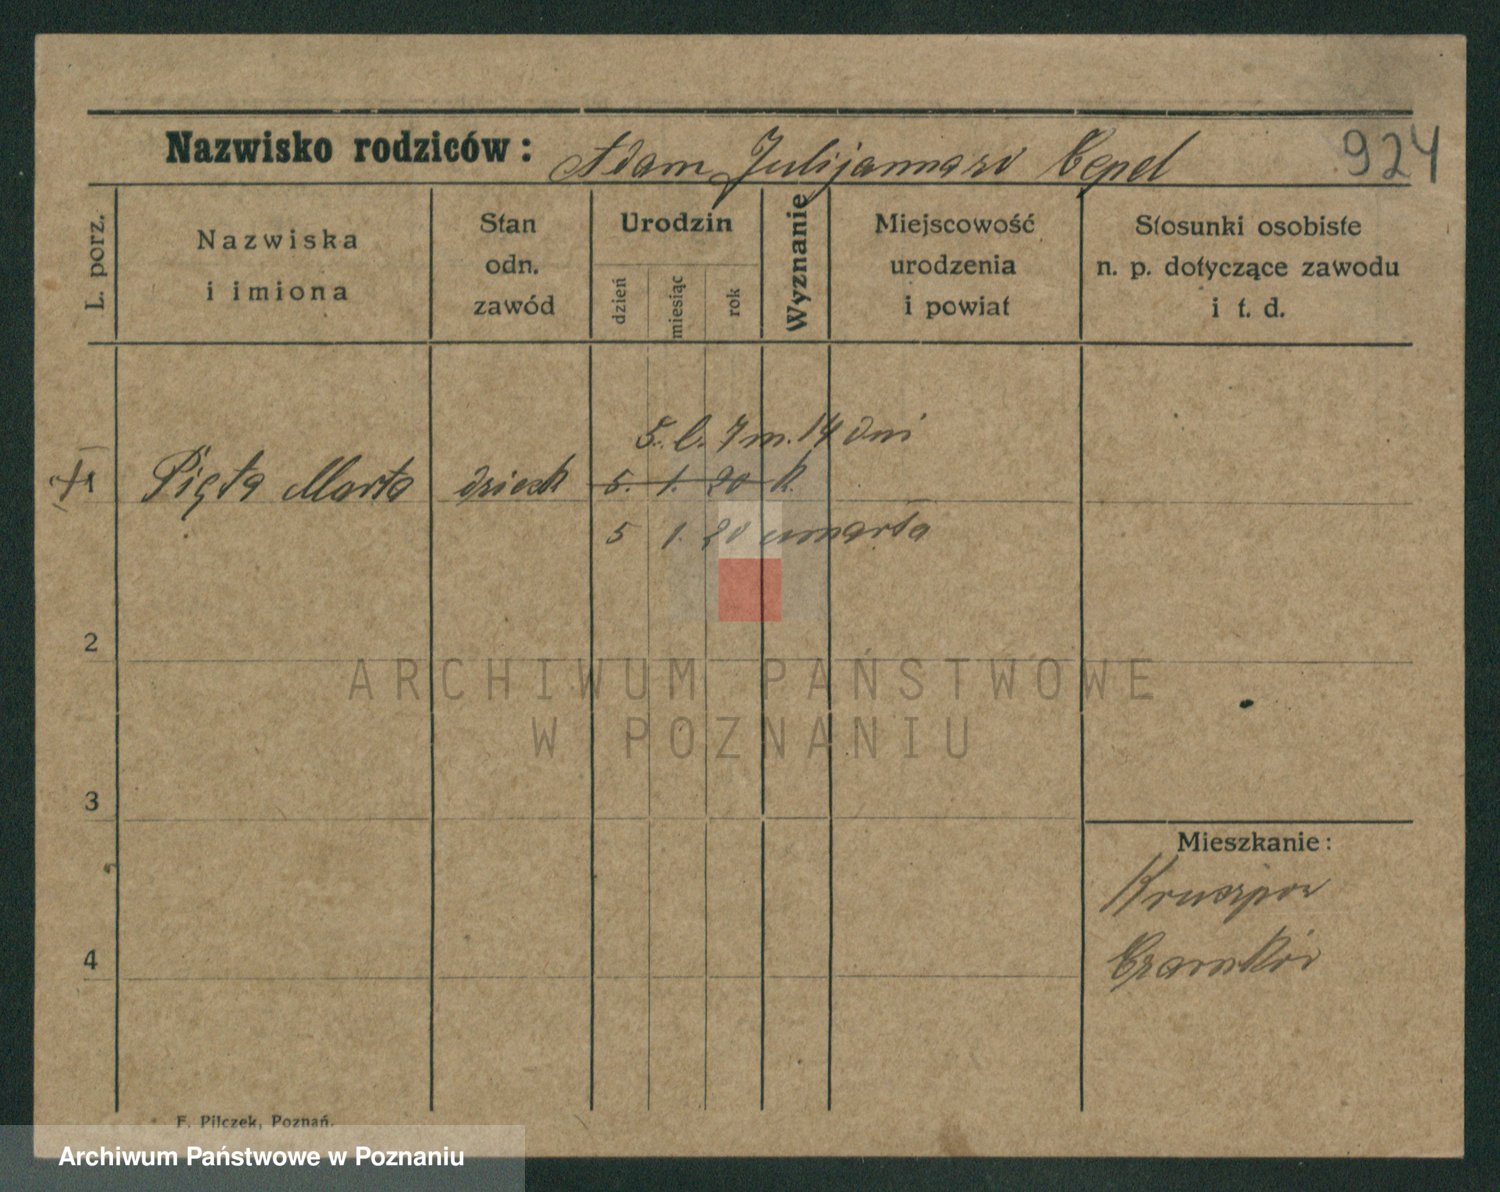 924
Nazwisko rodziców: Adam Julijanna zd Cepel
L. porz.
Nazwiska
i imiona
Stan
odn.
zawód
Urodzin
dzień
miesiąc
rok
Wyznanie
Miejscowość
urodzenia
i powiat
Stosunki osobiste
n. p. dotyczące zawodu
i t. d.
5. l. 7 m. 14 dni
1 Pięta Marta dzieck 5. 1. 20 k.
5 1. 20 umarła
2
3
4
Mieszkanie:
F. Pilczek, Poznań.
ARCHIWUM PAŃSTWOWE
W POZNANIU
Archiwum Państwowe w Poznaniu